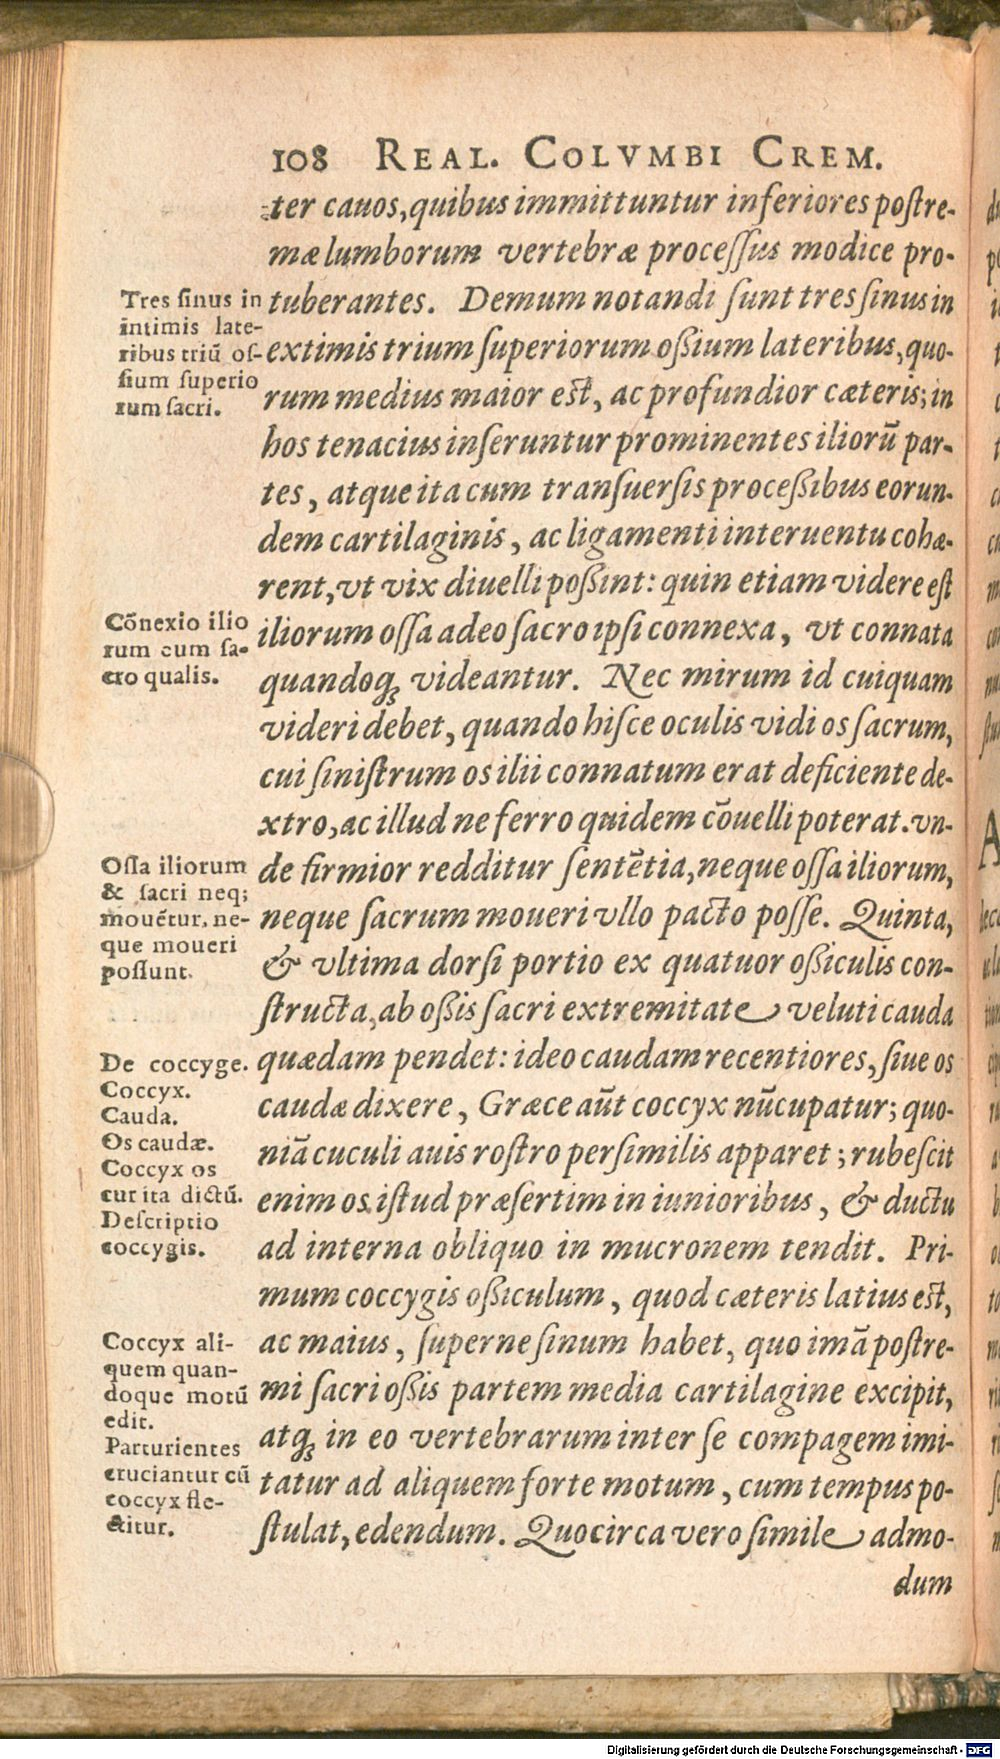 108 REAL. COLVMBI CREM.
ter cauos, quibus immittuntur inferiores postre-
mæ lumborum vertebræ processus modice pro-
tuberantes. Demum notandi sunt tres sinus in
extimis trium superiorum oßium lateribus, quo-
rum medius maior est, ac profundior cæteris; in
hos tenacius inseruntur prominentes iliorū par-
tes, atque ita cum transuersis proceßibus eorun-
dem cartilaginis, ac ligamenti interuentu cohæ-
rent, vt vix diuelli poßint: quin etiam videre est
iliorum ossa adeo sacro ipsi connexa, vt connata
quandoq; videantur. Nec mirum id cuiquam
videri debet, quando hisce oculis vidi os sacrum,
cui sinistrum os ilii connatum erat deficiente de-
xtro, ac illud ne ferro quidem cōuelli poterat. vn-
de firmior redditur sentētia, neque ossa iliorum,
neque sacrum moueri vllo pacto posse. Quinta,
& vltima dorsi portio ex quatuor oßiculis con-
structa, ab oßis sacri extremitate veluti cauda
quædam pendet: ideo caudam recentiores, siue os
caudæ dixere, Græce aūt coccyx nūcupatur; quo-
niā cuculi auis rostro persimilis apparet; rubescit
enim os istud præsertim in iunioribus, & ductu
ad interna obliquo in mucronem tendit. Pri-
mum coccygis oßiculum, quod cæteris latius est,
ac maius, superne sinum habet, quo imā postre-
mi sacri oßis partem media cartilagine excipit,
atq; in eo vertebrarum inter se compagem imi-
tatur ad aliquem forte motum, cum tempus po-
stulat, edendum. Quocirca vero simile admo-
dum
Tres sinus in
intimis late-
ribus triū os-
sium superio
rum sacri.
Cōnexio ilio
rum cum sa-
cro qualis.
Ossa iliorum
& sacri neq;
mouētur, ne-
que moueri
possunt.
De coccyge.
Coccyx.
Cauda.
Os caudæ.
Coccyx os
cur ita dictū.
Descriptio
coccygis.
Coccyx ali-
quem quan-
doque motū
edit.
Parturientes
cruciantur cū
coccyx fle-
ctitur.
Digitalisierung gefördert durch die Deutsche Forschungsgemeinschaft - DFG